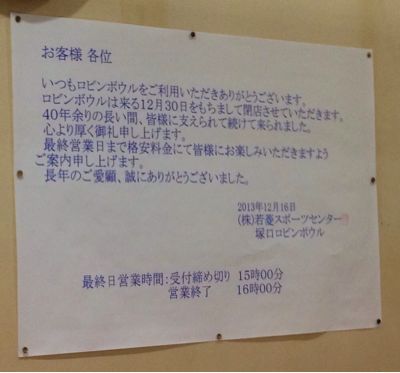 お客様 各位
いつもロビンボウルをご利用いただきありがとうございます。
ロビンボウルは来る12月30日をもちまして閉店させていただきます。
40年余りの長い間、皆様に支えられて続けて来られました。
心より厚く御礼申し上げます。
最終営業日まで格安料金にて皆様にお楽しみいただきますよう
ご案内申し上げます。
長年のご愛顧、誠にありがとうございました。
2013年12月16日
(株)若菱スポーツセンター
塚口ロビンボウル
最終日営業時間:受付締め切り 15時00分
営業終了 16時00分